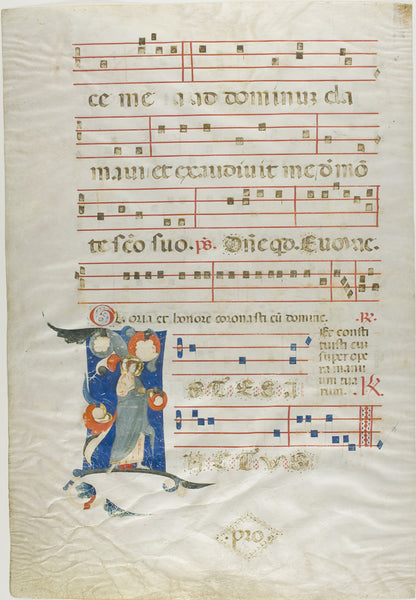 ce mea ad dominuz cla
maui et exaudiuit me d̄ mō
te sc̄o suo. ps. Dn̄e qd. Euouae.
Gloria et honore coronasti eū domine. ℟.
Et consti
tuisti eū
super ope
ra manu
um tua
rum. ℟
STESI
pro